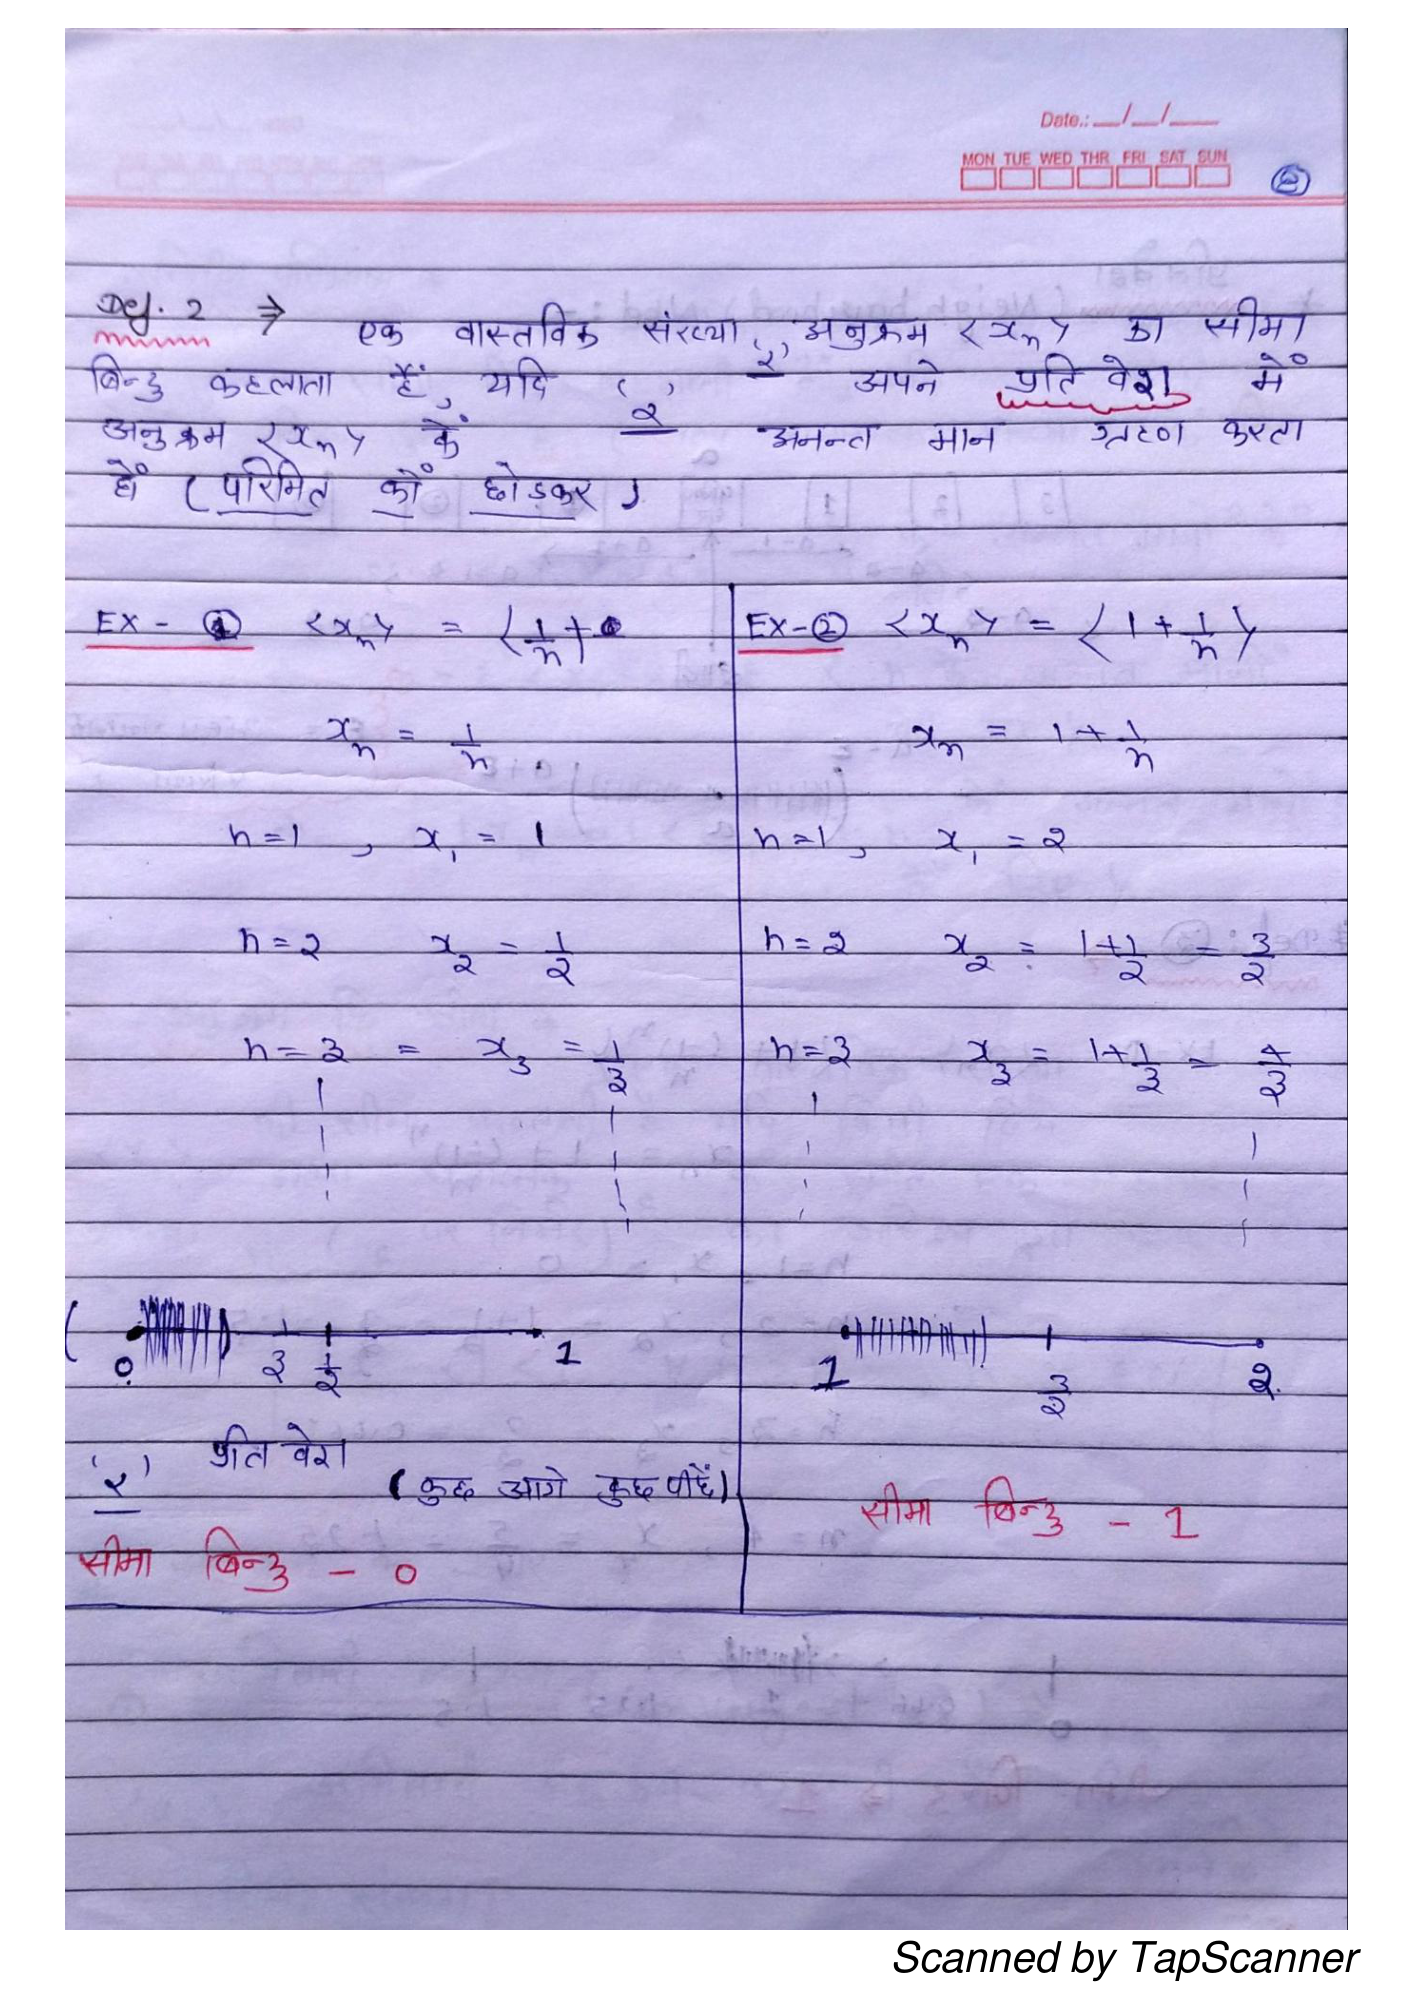 Date.: __/__/___
MON TUE WED THR FRI SAT SUN
②
Def. 2 ⇒ एक वास्तविक संख्या 'x' अनुक्रम <xₙ> का सीमा
बिन्दु कहलाता हैं, यदि 'x' अपने प्रति वेश में
अनुक्रम <xₙ> कें अनन्त मान ग्रहण करता
हों (परिमित कों छोडकर)
EX - ① <xₙ> = <1/n>
xₙ = 1/n
n=1 , x₁ = 1
n=2 x₂ = 1/2
n=3 = x₃ = 1/3
0 3 1/2 1
'x' प्रति वेश (कुछ आगे कुछ पीछें)
सीमा बिन्दु - 0
EX-② <xₙ> = <1+1/n>
xₙ = 1+1/n
n=1, x₁ = 2
n=2 x₂ = 1+1/2 = 3/2
n=3 x₃ = 1+1/3 = 4/3
1 3/2 2
सीमा बिन्दु - 1
Scanned by TapScanner